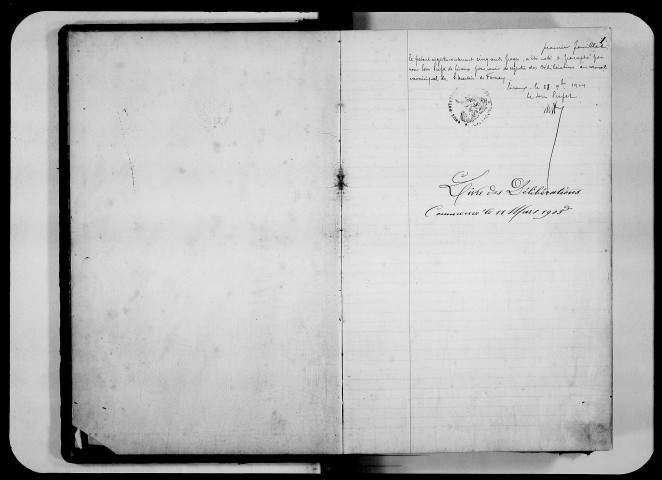 premier feuillet
1
Le présent registre contenant cinq cents pages, a été coté et paraphé par
nous Sous Préfet de pour servir de registre des Délibérations du conseil
municipal de
le 18 9bre 1904
Le Sous Préfet
Livre des Délibérations
Commencé le 11 Mars 1905